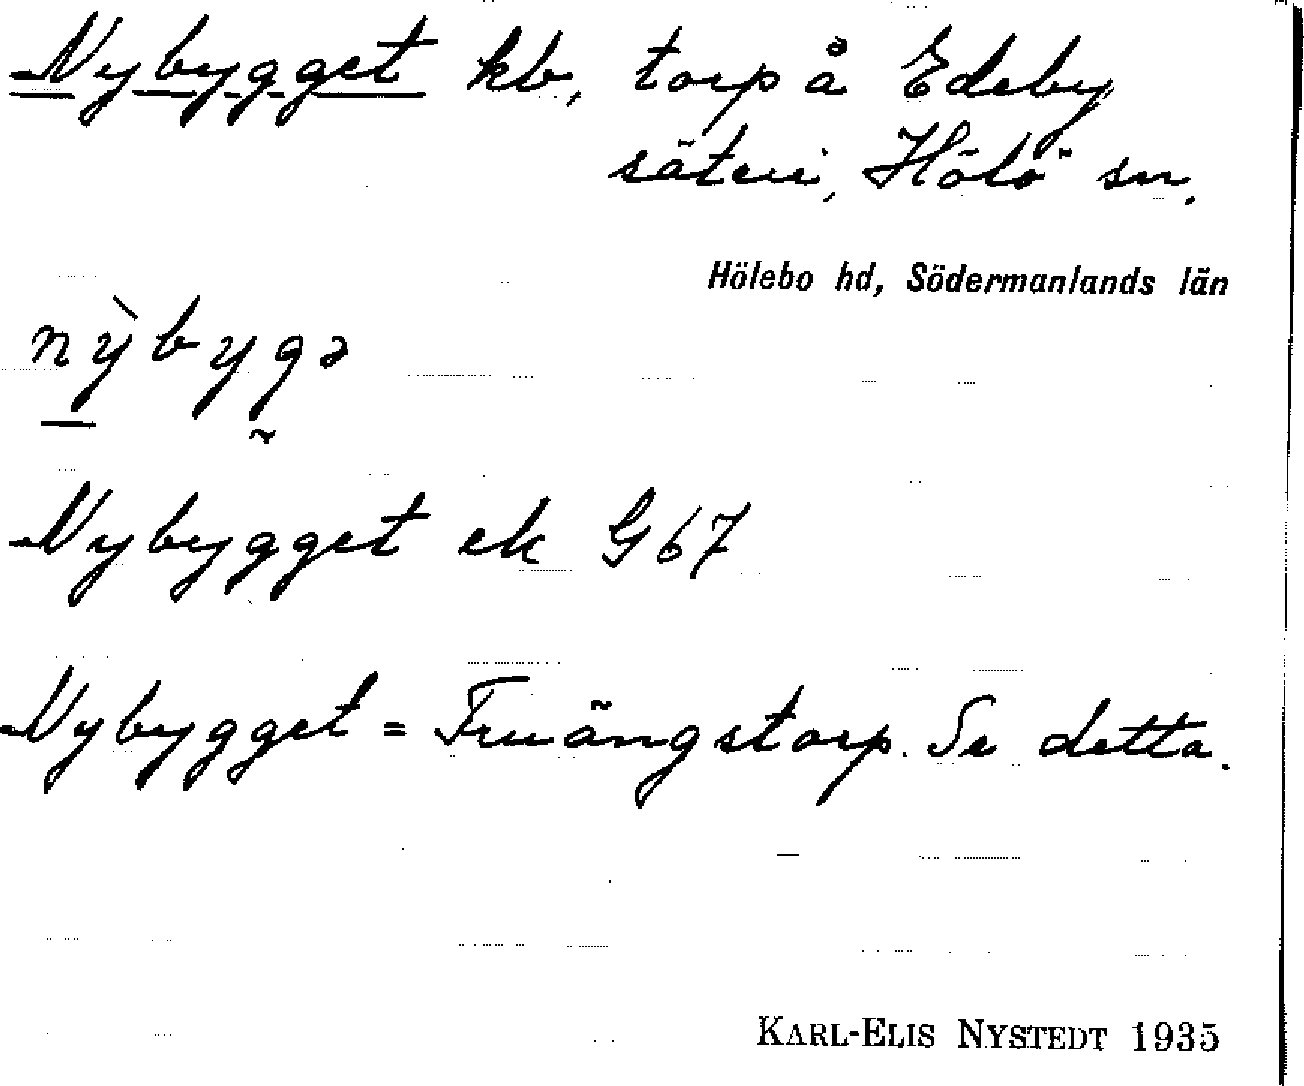 Nybygget kb, torp å Edeby
säteri, Hölö sn.
Hölebo hd, Södermanlands län
nỳbygə
Nybygget ek G 67
Nybygget = Fruängstorp. Se detta.
KARL-ELIS NYSTEDT 1935